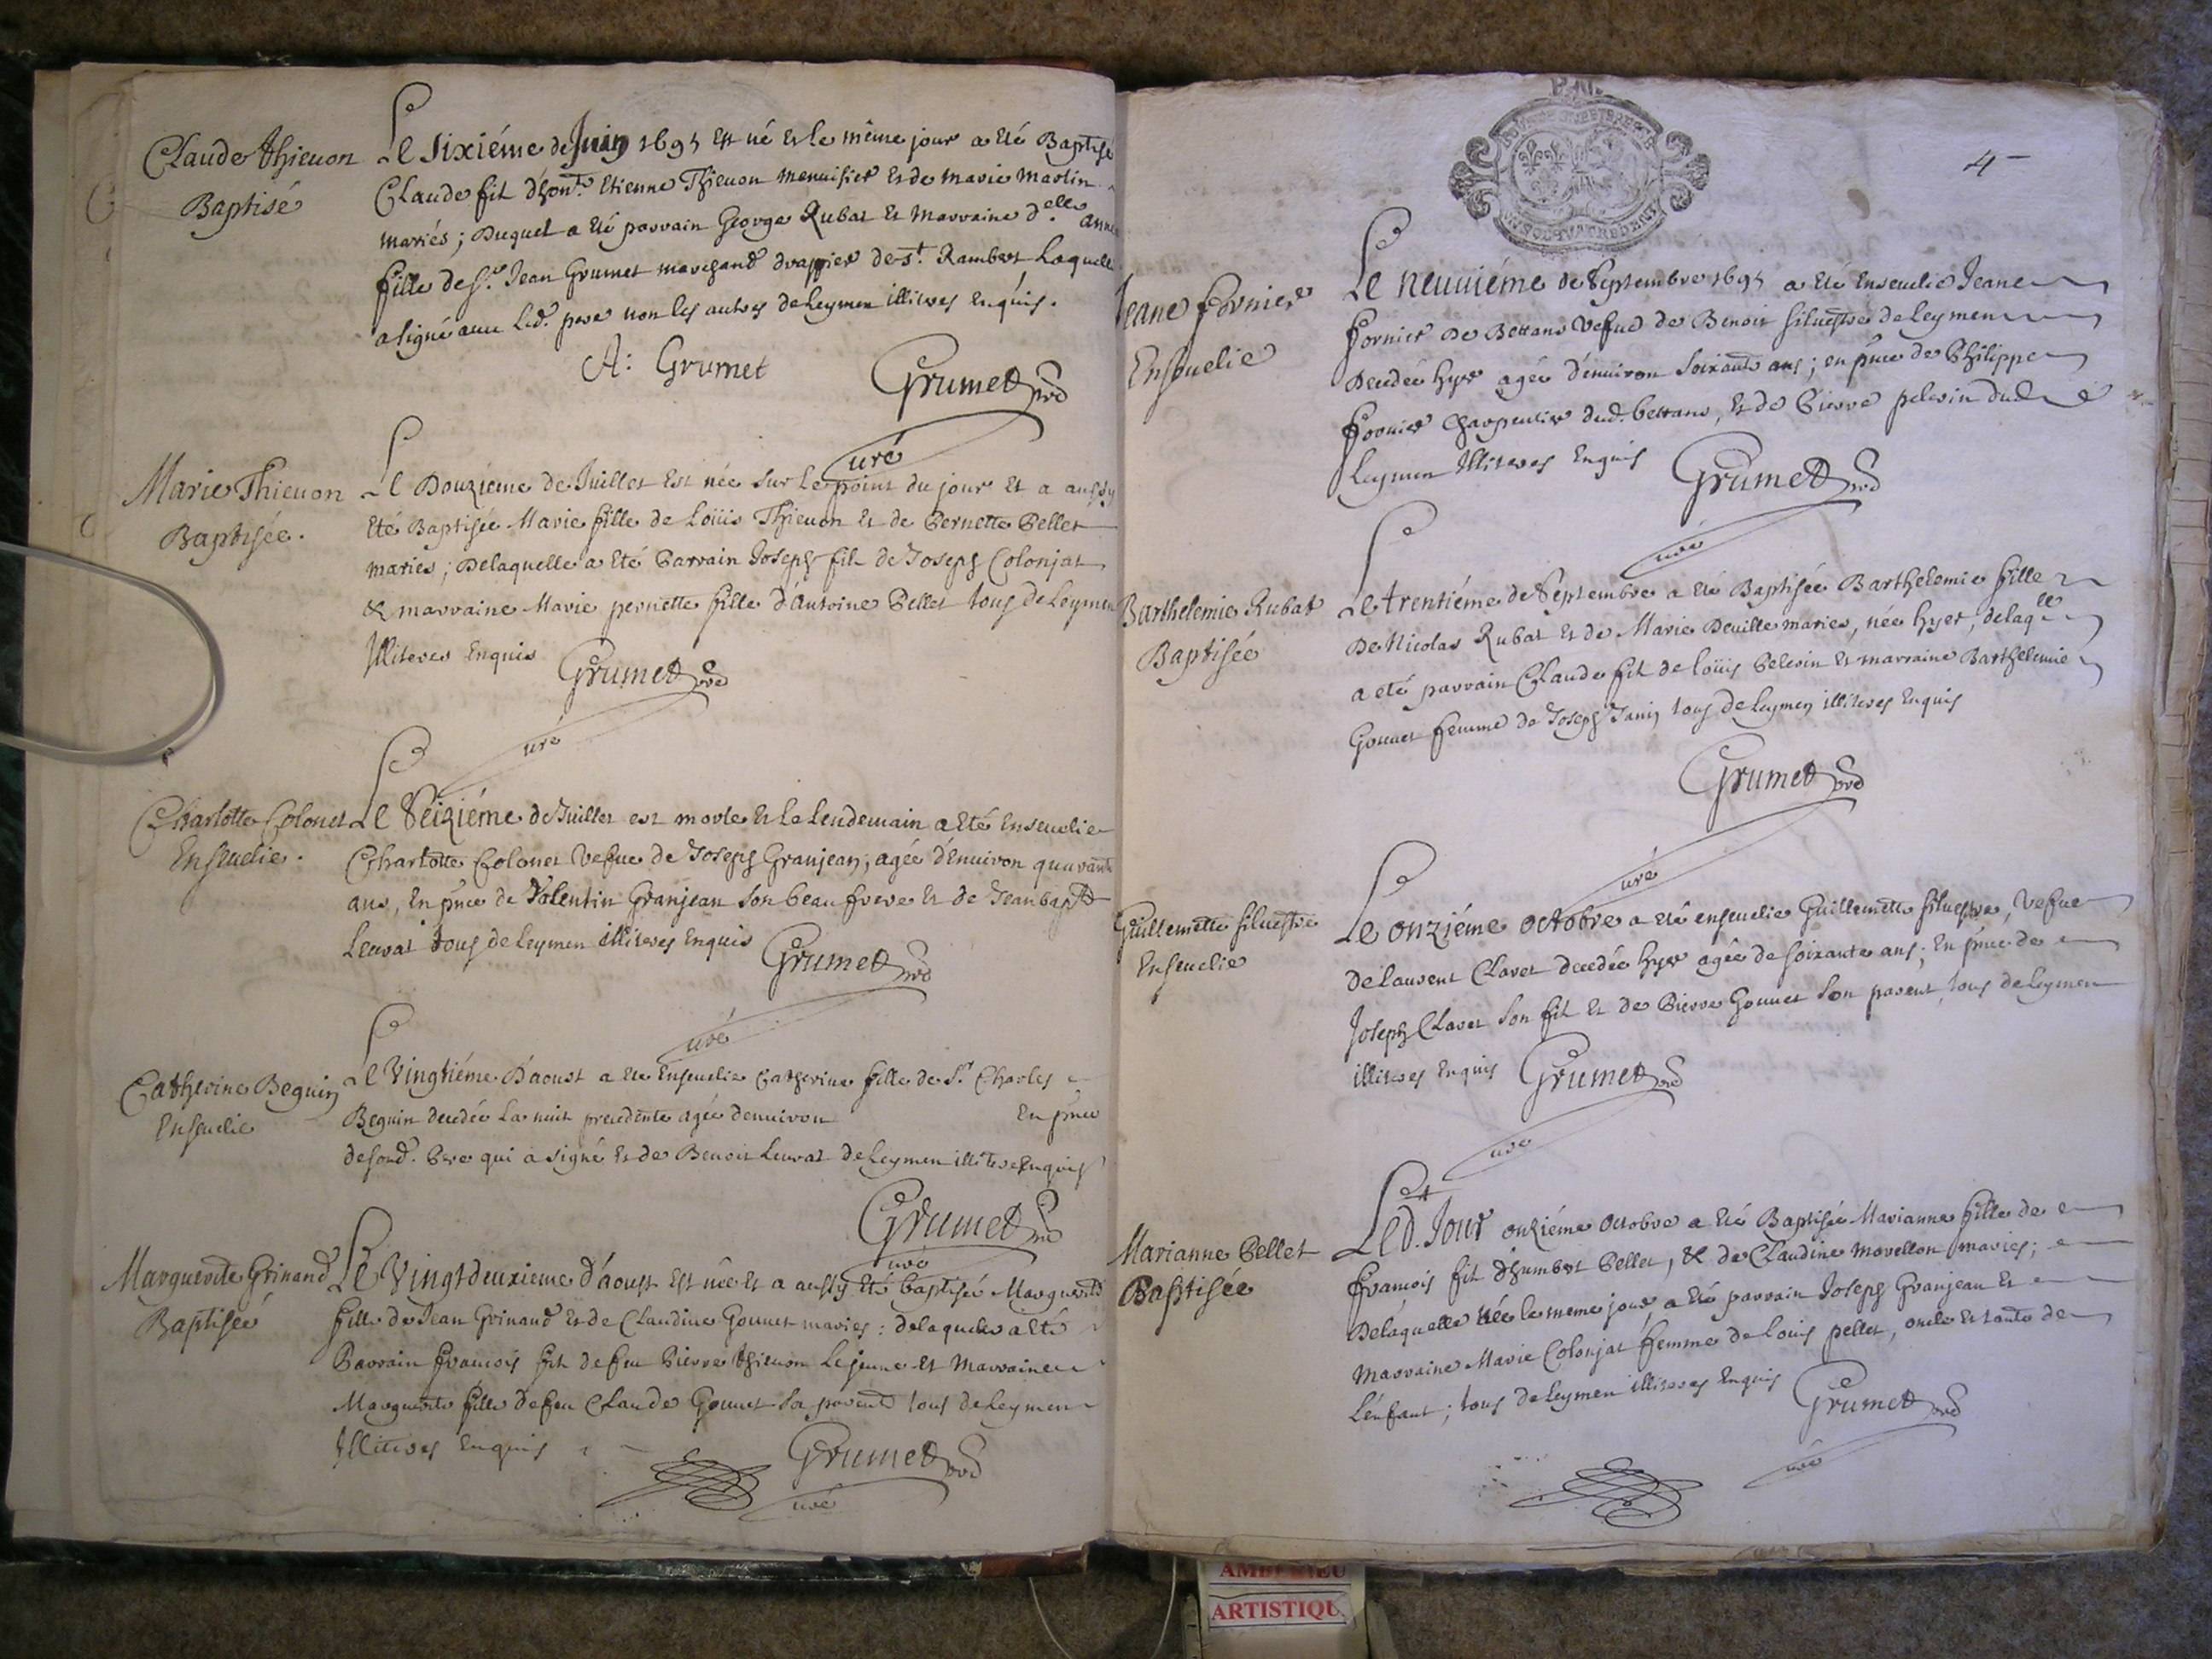 Claude Thieuon
Baptisé
Le sixiéme de Juin 1695 est né et le même jour a eté Baptisé
Claude fil d'hon.^t Etienne Thieuon menuisier et de marie martin
mariés ; Duquel a eté parrain George Rubat et marraine d.^elle anne
fille de s.^r Jean Grumet marchand drappier de s.^t Rambert Laquelle
a signé auec led. pere non les autres de Leymen illiteres enquis.
A: Grumet
Grumet
curé
Marie Thieuon
Baptisée.
Le Douzieme de Juillet est née sur le point du jour et a aussy
eté Baptisée Marie fille de Loüis Thieuon et de Pernette Pellet
maries ; Delaquelle a eté Parrain Joseph fil de Joseph Colonjat
& marraine Marie pernette fille d'Antoine Pellet tous de Leymen
Illiteres enquis
Grumet
curé
Charlotte Colonet
Enseuelie.
Le Seiziéme de Juillet est morte et le lendemain a eté enseuelie
Charlotte Colonet Vefue de Joseph Granjean, agée d'enuiron quarante
ans, en pñce de Valentin Granjean son beau frere et de Jean bap^te
Leurat tous de Leymen illiteres enquis
Grumet
curé
Catherine Beguin
Enseuelie
Le Vingtiéme D'aoust a eté enseuelie Catherine fille de S.^r Charles
Beguin decedée la nuit precedente agée denuiron en pñce
de sond. Pere qui a signé et de Benoit Leurat de Leymen illitere enquis
Grumet
curé
Marguerite Grinand
Baptisée
Le Vingt deuxieme d'aoust est née et a aussy eté baptisée Marguerite
fille de Jean Grinand et de Claudine Gonnet maries : delaquelle a eté
Parrain François fil de feu Pierre Thieuon le jeune et Marraine
Marguerite fille de feu Claude Gonnet sa parente tous de Leymen
Illiteres enquis
Grumet
curé
4
Jeane Fornier
Enseuelie
Le neuuiéme de Septembre 1695 a eté enseuelie Jeane
Fornier de Bettans Vefue de Benoit Siluestre de Leymen
Decedée hyer agée d'enuiron soixante ans ; en pñce de Philippe
Fornier charpentier dud. bettans, et de Pierre pelerin dud
Leymen Illiteres enquis
Grumet
curé
Barthelemie Rubat
Baptisée
Le trentiéme de Septembre a eté Baptisée Barthelemie fille
De Nicolas Rubat et de Marie Deuille maries, née hyer, delaq^lle
a eté parrain Claude fil de Loüis Pelerin et marraine Barthelemie
Gonnet femme de Joseph Janin tous de Leymen illiteres enquis
Grumet
curé
Guillemette Siluestre
Enseuelie
Le onziéme octobre a eté enseuelie Guillemette Siluestre, Vefue
de laurent Claret decedée hyer agée de soixante ans ; en pñce de
Joseph Claret son fil et de Pierre Gonnet son parent, tous de Leymen
illiteres enquis
Grumet
curé
Marianne Pellet
Baptisée
Led.^t Jour onziéme octobre a eté Baptisée Marianne fille de
François fil d'humbert Pellet, & de Claudine morellon maries ;
Delaquelle née le meme jour, a eté parrain Joseph Granjean et
marraine Marie Colonjat femme de louis pellet, oncle et tante de
l'enfant ; tous de Leymen illiteres enquis
Grumet
curé
ARTISTIQU